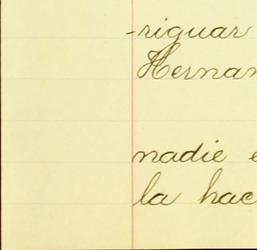 -riguar
Hernan
nadie e
la hac